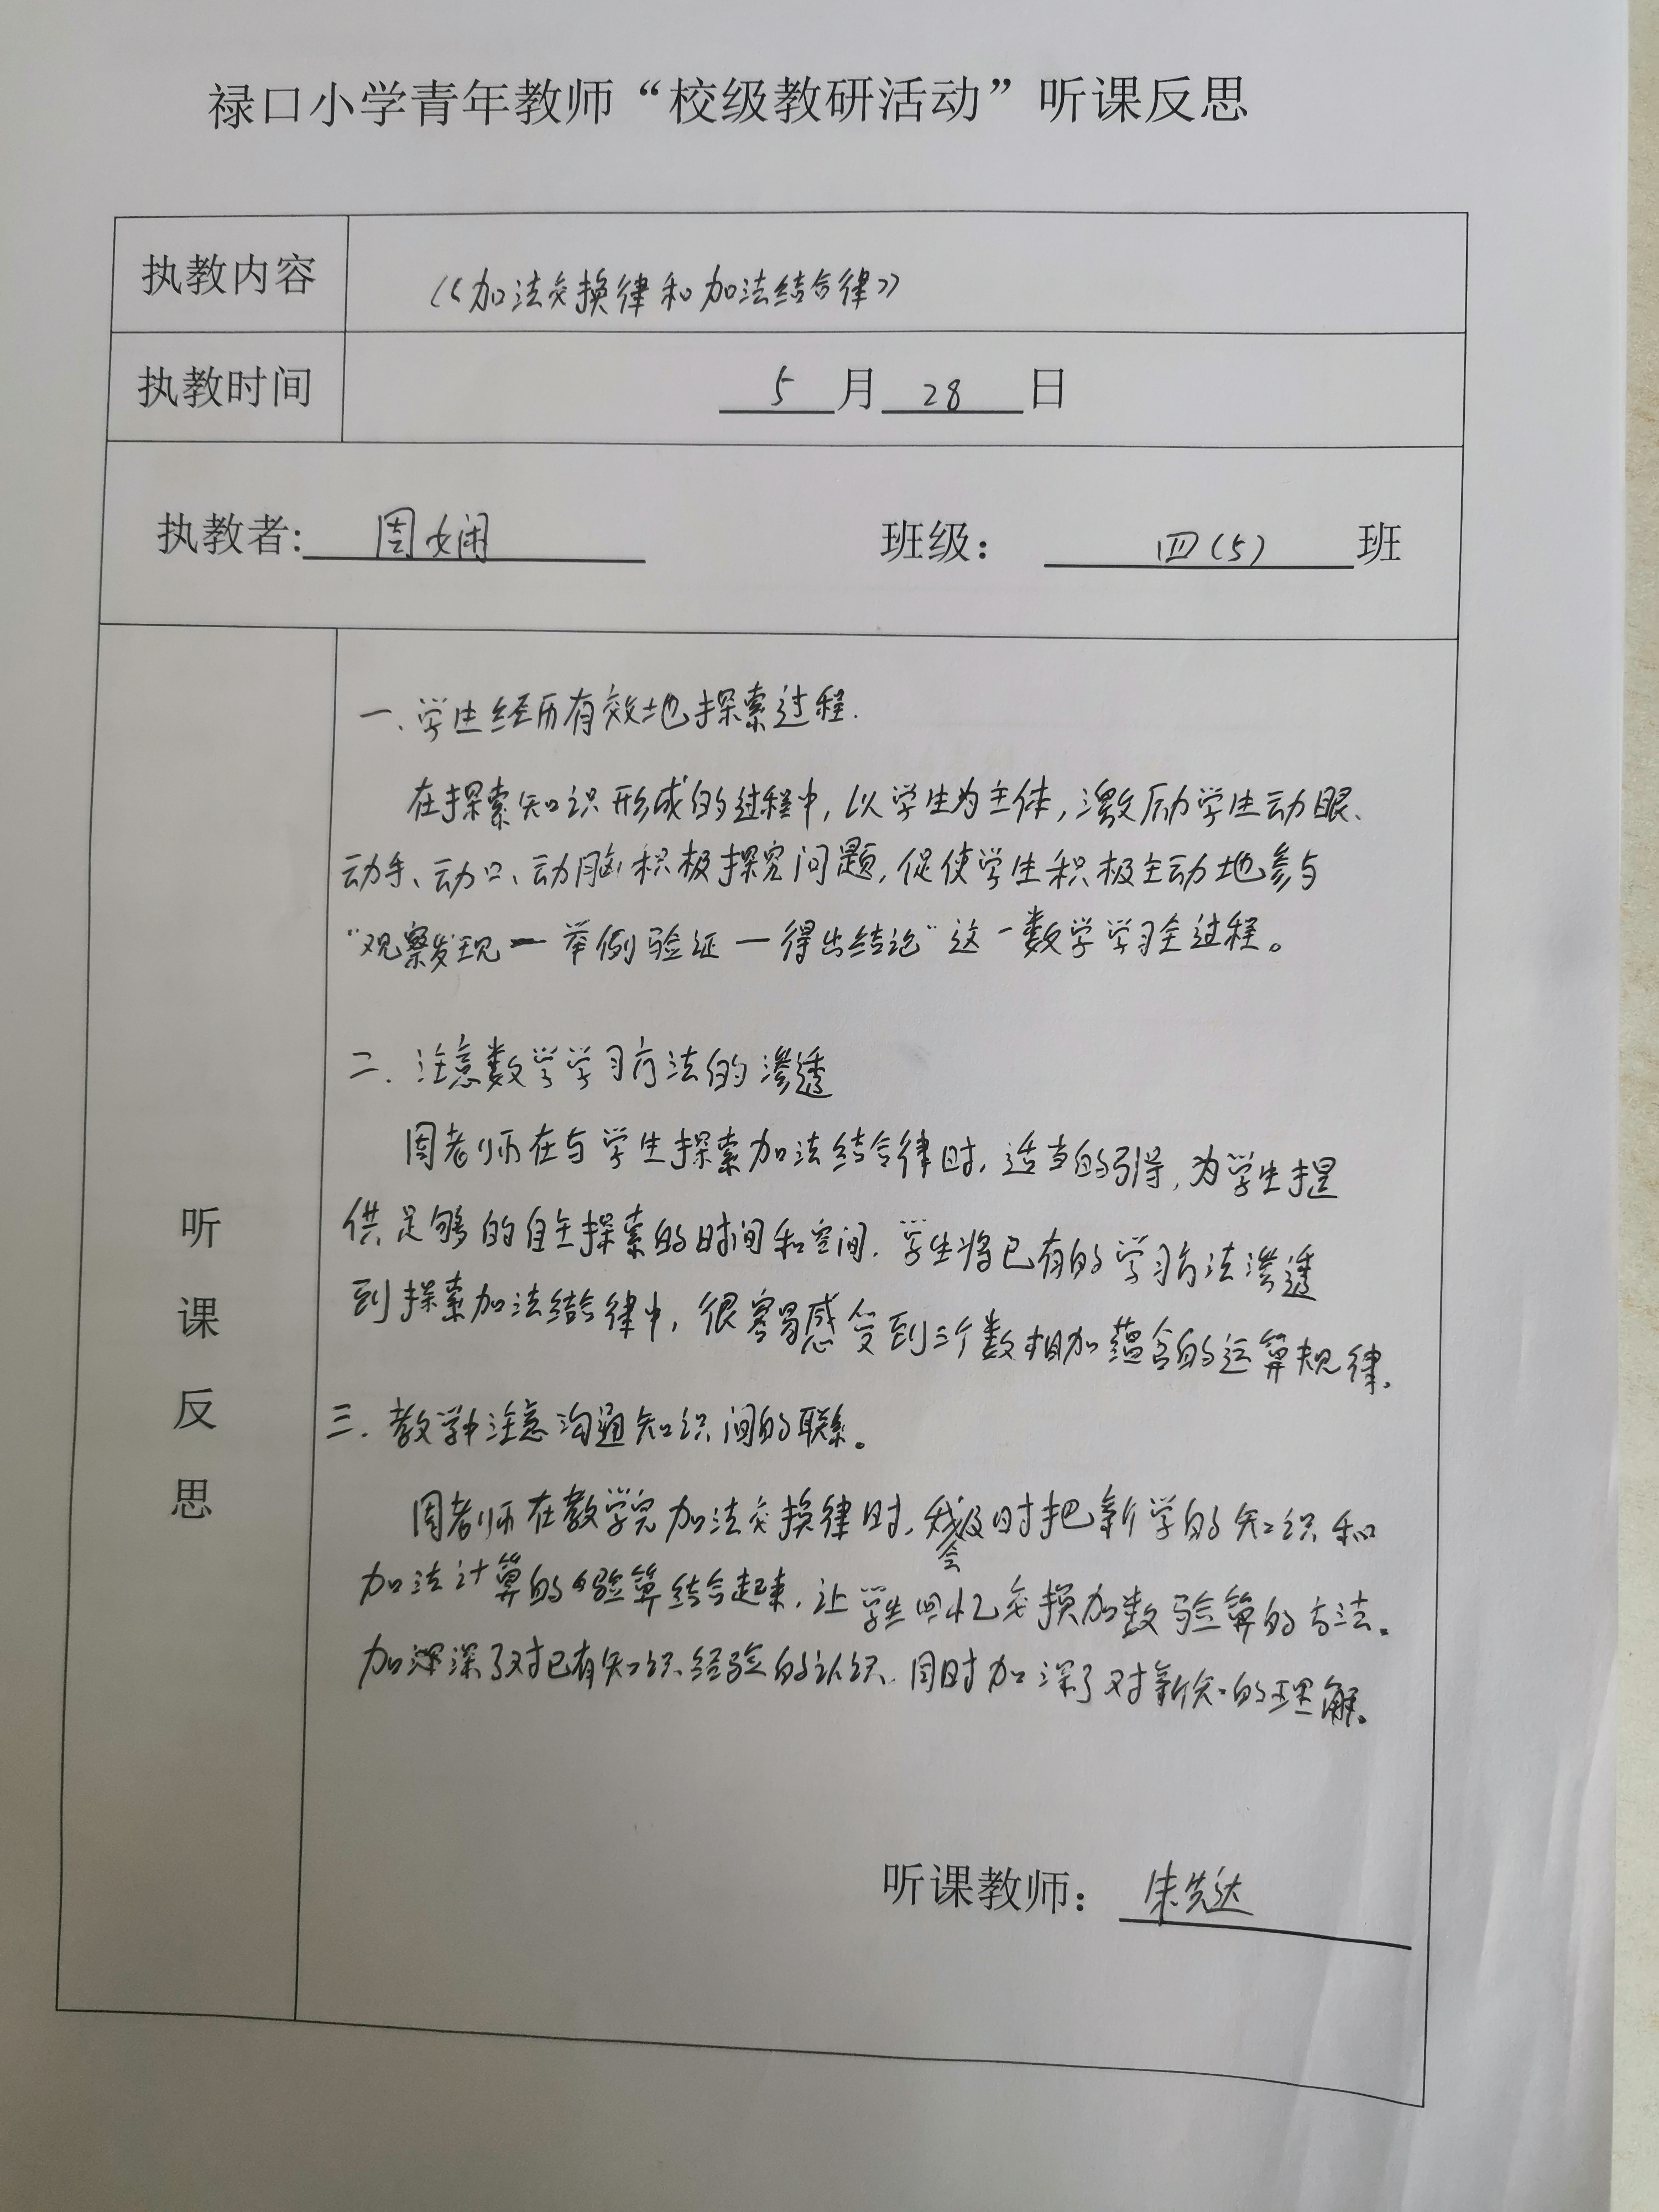 禄口小学青年教师“校级教研活动”听课反思
执教内容 《加法交换律和加法结合律》
执教时间 5月28日
执教者: 周娴 班级： 四(5)班
听课反思
一、学生经历有效地探索过程.
在探索知识形成的过程中,以学生为主体,激励学生动眼、
动手、动口、动脑积极探究问题,促使学生积极主动地参与
“观察发现一举例验证一得出结论”这一数学学习全过程。
二.注意数学学习方法的渗透
周老师在与学生探索加法结合律时,适当的引导,为学生提
供足够的自主探索的时间和空间.学生将已有的学习方法渗透
到探索加法结合律中,很容易感受到三个数相加蕴含的运算规律.
三.教学中注意沟通知识间的联系。
周老师在教学完加法交换律时,会及时把新学的知识和
加法计算的验算结合起来,让学生回忆交换加数验算的方法.
加深了对已有知识经验的认识.同时加深了对新知的理解.
听课教师： 朱先达